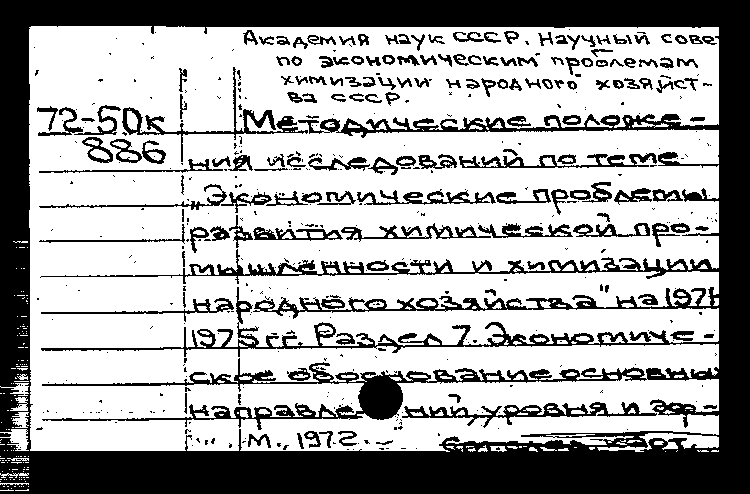 Академия наук СССР. Научный сове
по экономическим проблемам
химизации народного хозяйст-
ва СССР.
72-50к Методические положе-
886 ния исследований по теме
„Экономические проблемы
развития химической про-
мышленности и химизации
народного хозяйства" на 1971-
1975 гг. Раздел 7. Экономиче-
ское обоснование основны
направле ний, уровня и эф-
М., 1972.
См. след. карт.